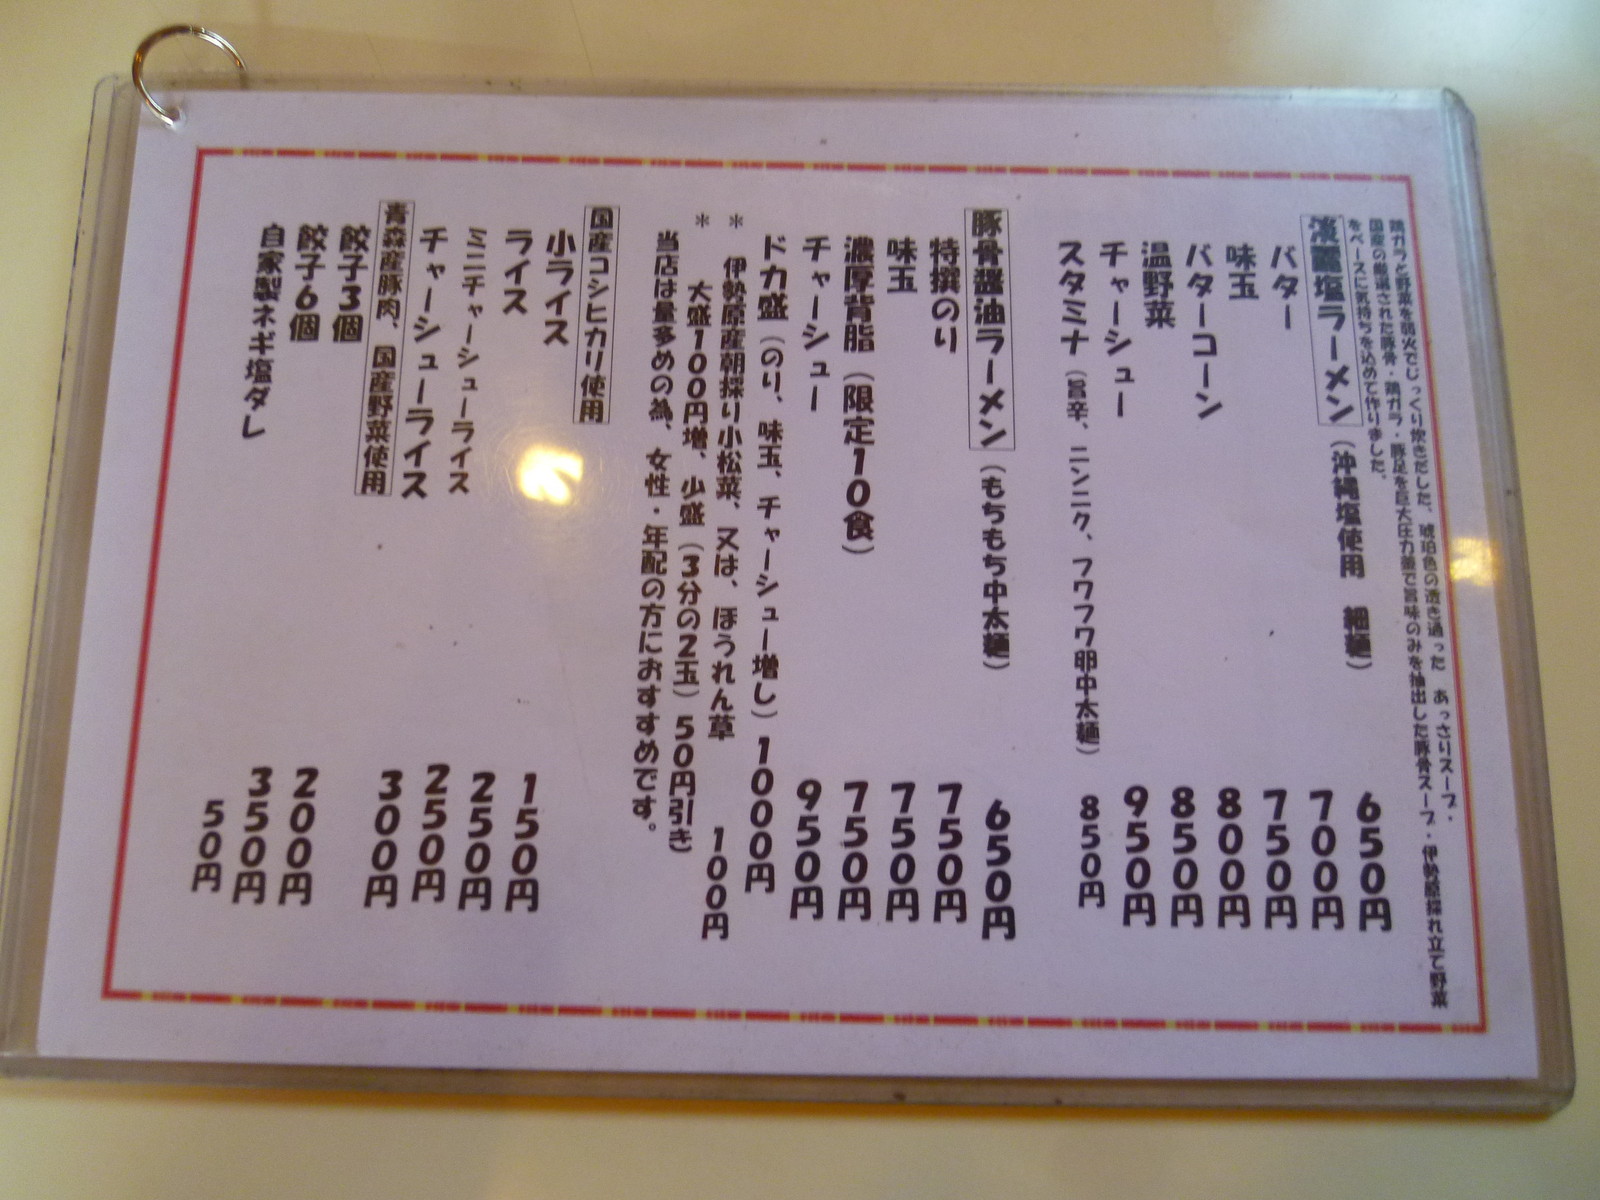 鶏ガラと野菜を弱火でじっくり炊きだした、琥珀色の透き通った　あっさりスープ・
国産の厳選された豚骨・鶏ガラ・豚足を巨大圧力釜で旨味のみを抽出した豚骨スープ・伊勢原採れ立て野菜
をベースに気持ちを込めて作りました。
淡麗塩ラーメン（沖縄塩使用　細麺）　650円
バター　700円
味玉　750円
バターコーン　800円
温野菜　850円
チャーシュー　950円
スタミナ（旨辛、ニンニク、フワフワ卵中太麺）　850円
豚骨醤油ラーメン（もちもち中太麺）　650円
特撰のり　750円
味玉　750円
濃厚背脂（限定10食）　750円
チャーシュー　950円
ドカ盛（のり、味玉、チャーシュー増し）1000円
＊　伊勢原産朝採り小松菜、又は、ほうれん草　100円
＊　大盛100円増、少盛（3分の2玉）50円引き
当店は量多めの為、女性・年配の方におすすめです。
国産コシヒカリ使用
小ライス　150円
ライス　250円
ミニチャーシューライス　250円
チャーシューライス　300円
青森産豚肉、国産野菜使用
餃子3個　200円
餃子6個　350円
自家製ネギ塩ダレ　50円